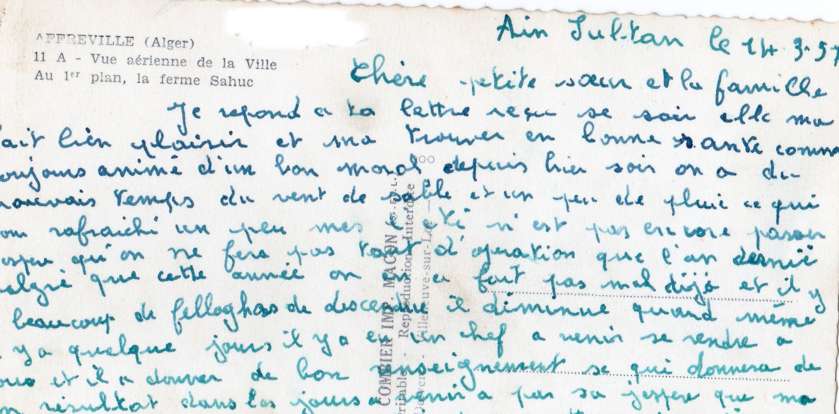 APFREVILLE (Alger)
11 A - Vue aérienne de la Ville
Au 1er plan, la ferme Sahuc
Ain Sultan le 14.3.57
Chère petite sœur et la famille
Je repond a ta lettre reçu se soir elle ma
fait bien plaisir et ma trouver en bonne sante comme
toujours animé d'un bon moral depuis hier soir on a du
mauvais temps du vent de sable et un peu de pluie ce qui
rafraichi un peu mes n'est pas encore
qu'on ne fera pas tant d'operation que l'an dernié
malgré que cette année on en a fait pas mal déjà et il y
beaucoup de fellaghas de descendu il diminue quand même
y a quelque jours il y a eu un chef a venir se rendre a
nous et il a donner de bon renseignement se qui donnera de
bon résultat dans les jours a venir a par sa j'espere que ma
COMBIER IMP. MACON
Reproduction Interdite